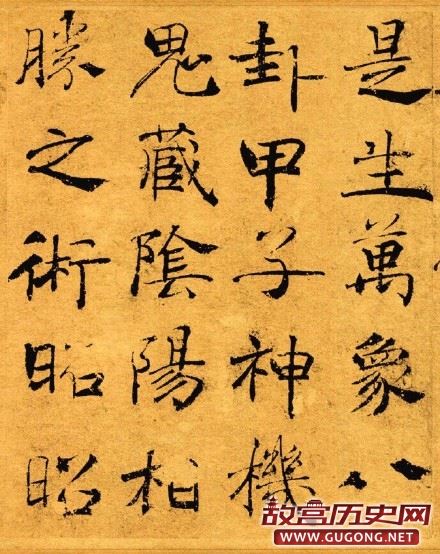 是生萬象八
卦甲子神機
鬼藏陰陽相
勝之術昭昭
故宫历史网
WWW.GUGONG.NET